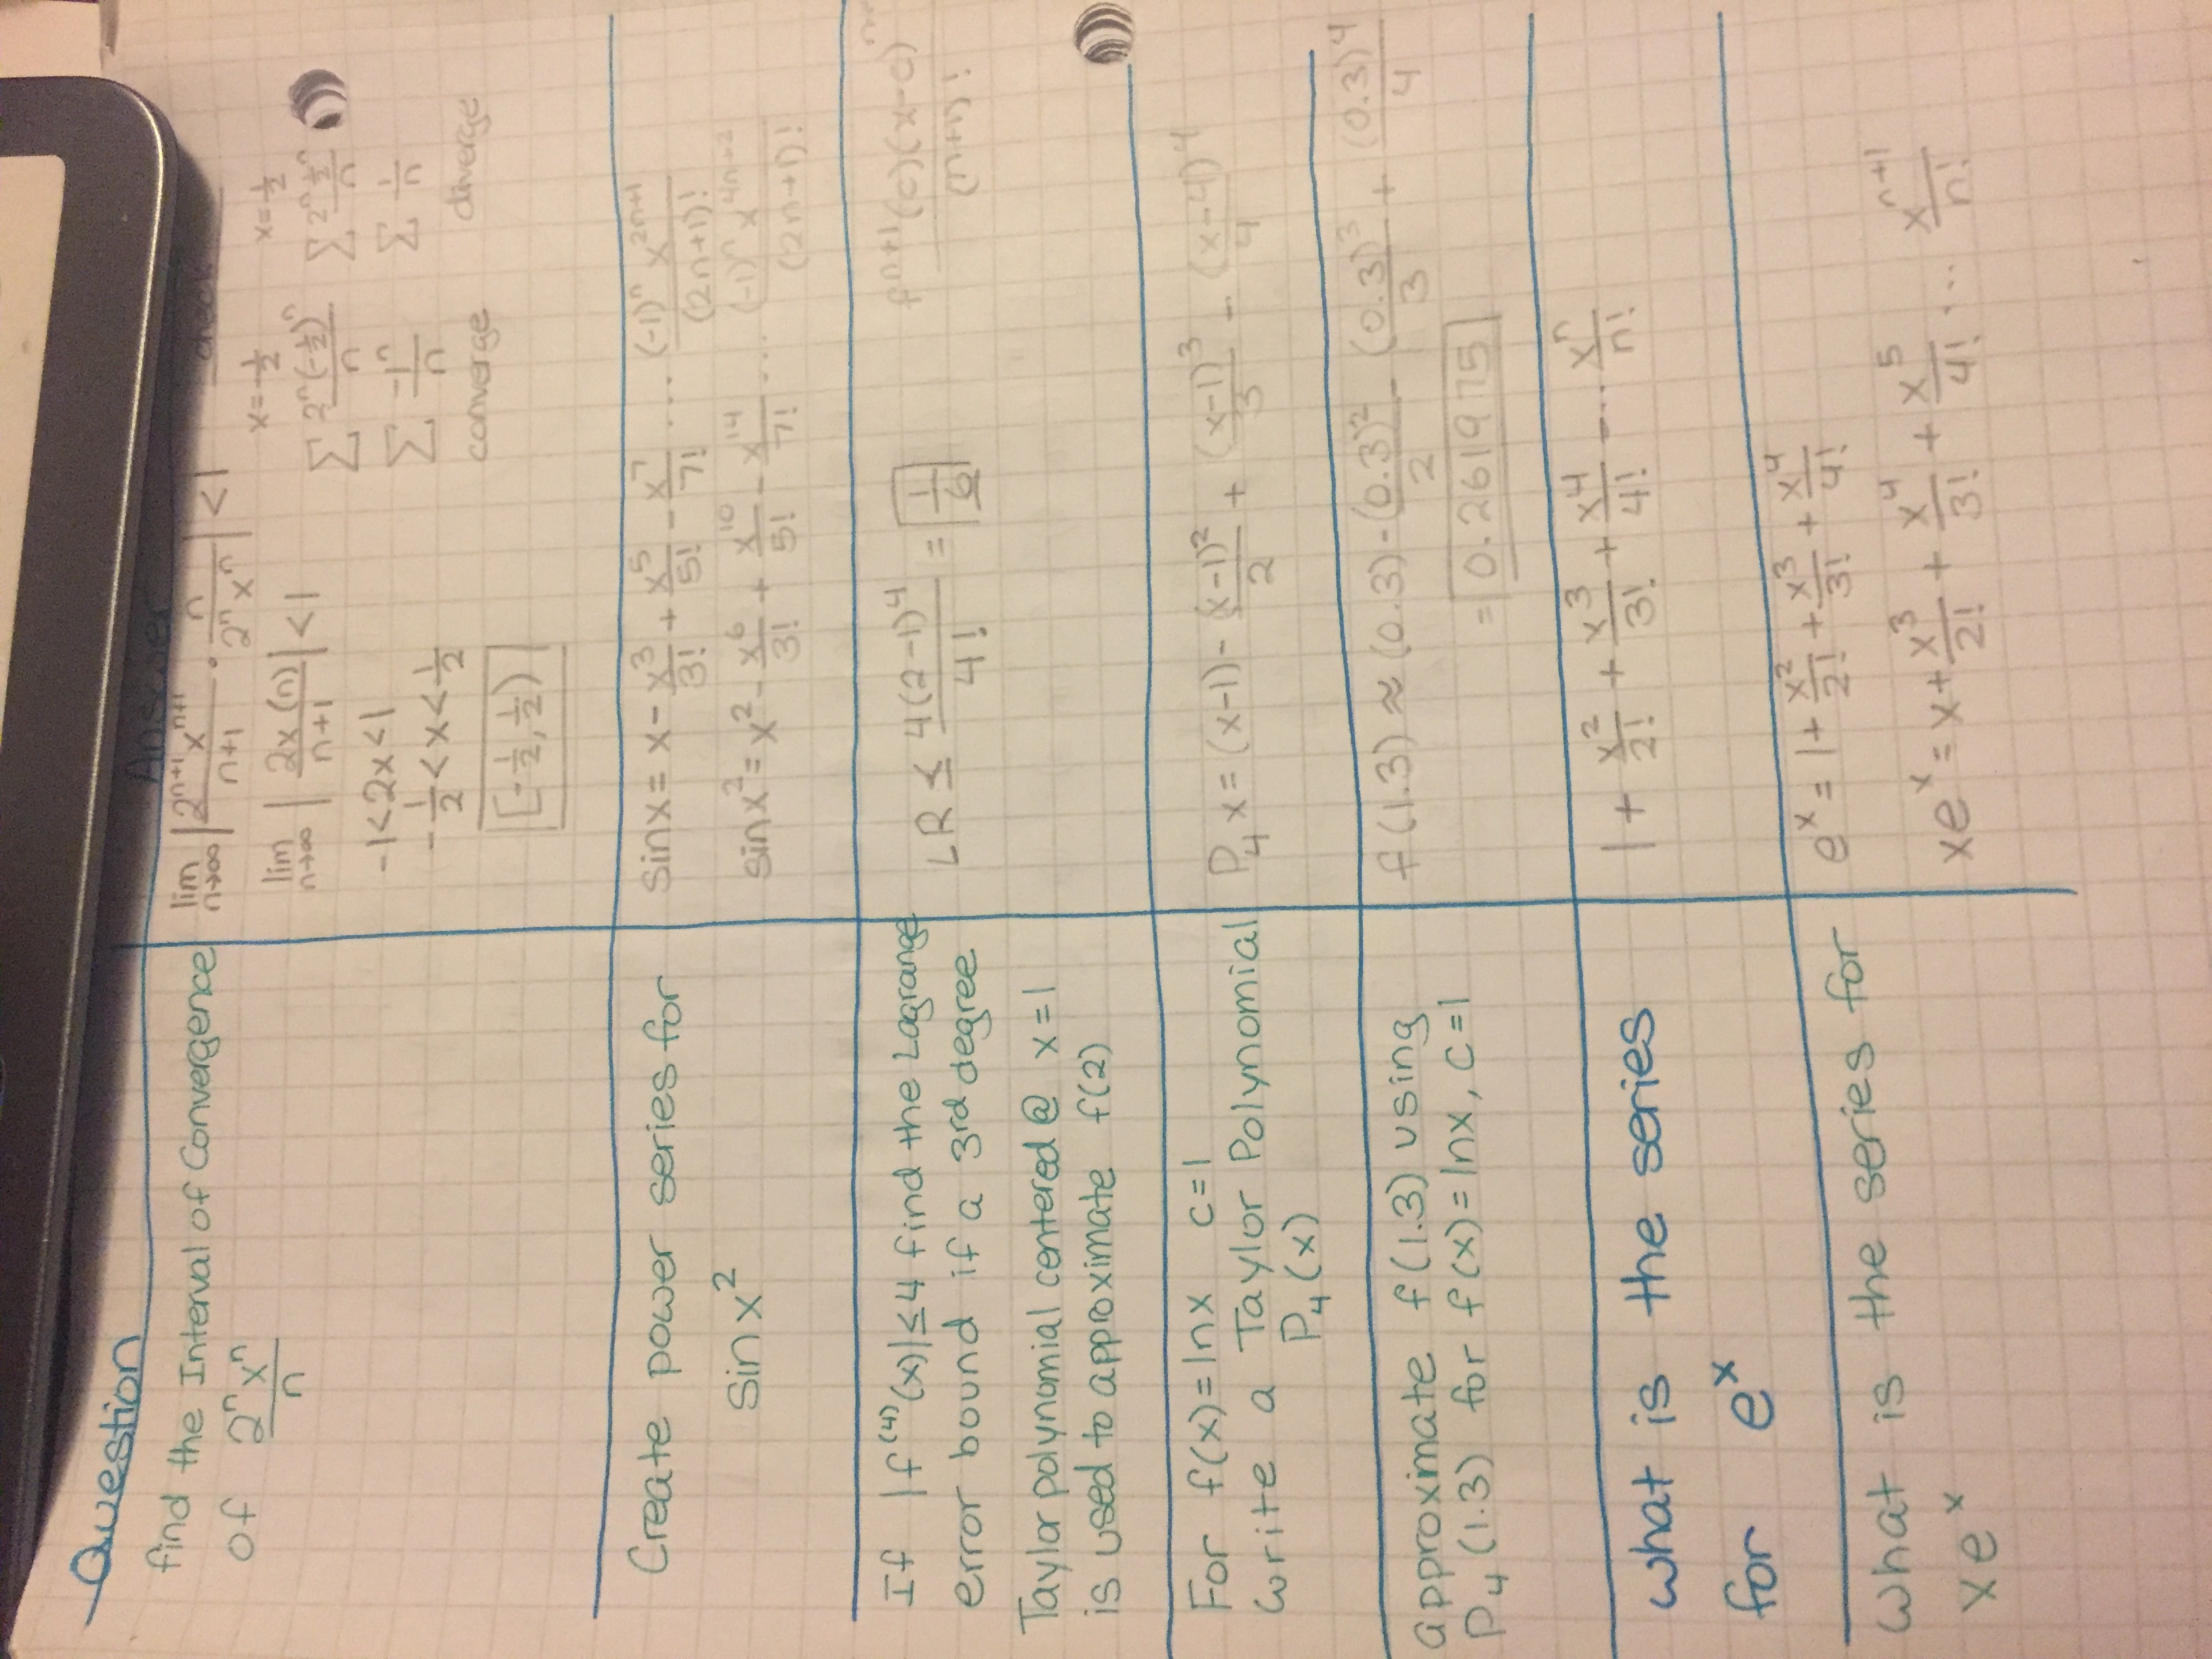 Question
Answer
find the Interval of Convergence
of 2^n x^n / n
lim n→∞ | 2^(n+1) x^(n+1) / n+1 · n / 2^n x^n | < 1
lim n→∞ | 2x(n) / n+1 | < 1
-1<2x<1
-1/2 < x < 1/2
[-1/2, 1/2)
check
x=-1/2
Σ 2^n (-1/2)^n / n
Σ -1^n / n
converge
x=1/2
Σ 2^n 1/2^n / n
Σ 1/n
diverge
Create power series for
sin x^2
sinx = x - x^3/3! + x^5/5! - x^7/7! ... (-1)^n x^(2n+1) / (2n+1)!
sinx^2 = x^2 - x^6/3! + x^10/5! - x^14/7! ... (-1)^n x^(4n+2) / (2n+1)!
If |f^(4)(x)|≤4 find the Lagrange
error bound if a 3rd degree
Taylor polynomial centered @ x=1
is used to approximate f(2)
LR ≤ 4(2-1)^4 / 4! = 1/6
f^(n+1)(c)(x-c)^(n+1) / (n+1)!
For f(x)=lnx c=1
write a Taylor Polynomial
P₄(x)
P₄x = (x-1) - (x-1)^2/2 + (x-1)^3/3 - (x-4)^4/4
approximate f(1.3) using
P₄(1.3) for f(x)=lnx, c=1
f(1.3) ≈ (0.3) - (0.3)^2/2 - (0.3)^3/3 + (0.3)^4/4
= 0.261975
what is the series
for e^x
1 + x^2/2! + x^3/3! + x^4/4! ... x^n/n!
What is the series for
xe^x
e^x = 1 + x^2/2! + x^3/3! + x^4/4!
xe^x = x + x^3/2! + x^4/3! + x^5/4! ... x^(n+1)/n!